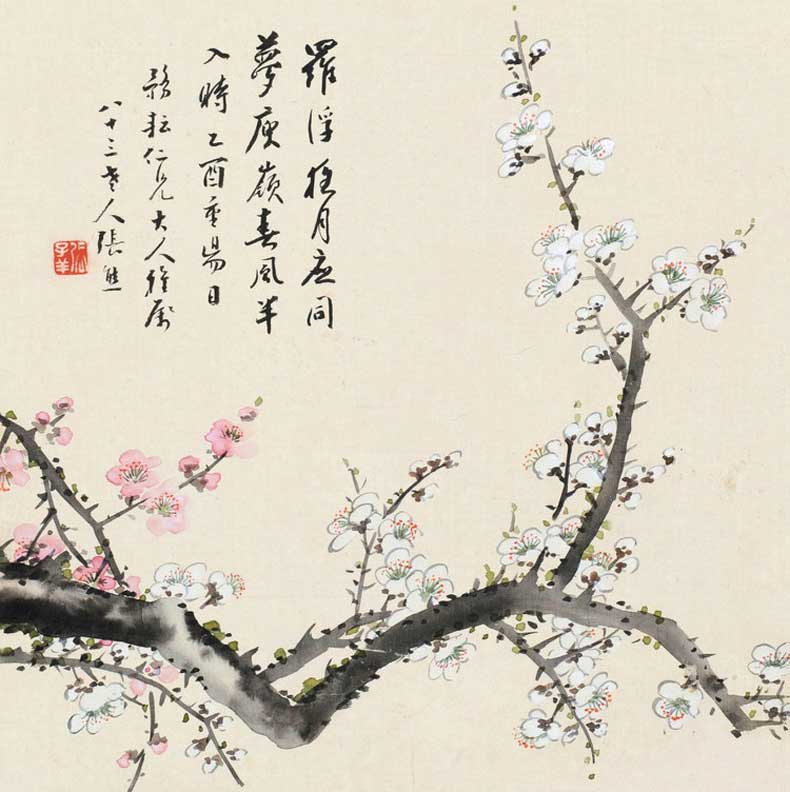 羅浮夜月應同
夢庾嶺春風半
入時乙酉重陽日
耘仁兄大人雅屬
八十三老人張熊